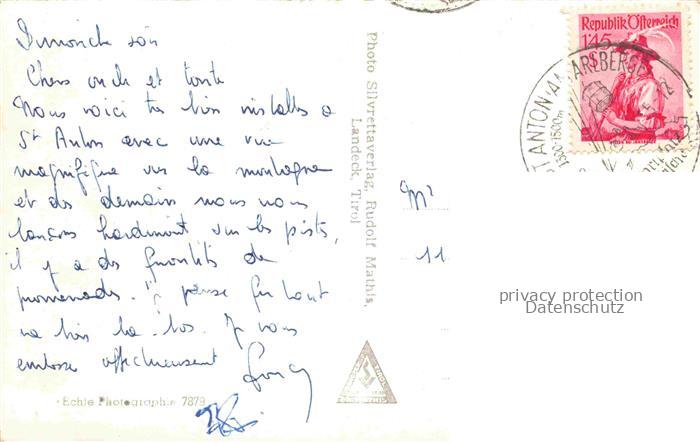 Dimanche soir
Chers oncle et tante
Nous voici très bien installés à
St Anton avec une vue
magnifique sur la montagne
et dès demain nous nous
lançons hardiment sur les pistes,
il y a des quantités de
promenades. Je pense que tout
va bien là-bas. Je vous
embrasse affectueusement
Photo Silvrettaverlag, Rudolf Mathis,
Landeck, Tirol
Echte Photographie 7879
Republik Österreich
1'45
S
ST ANTON AM ARLBERG
1300-1500m
Mr
11
privacy protection
Datenschutz